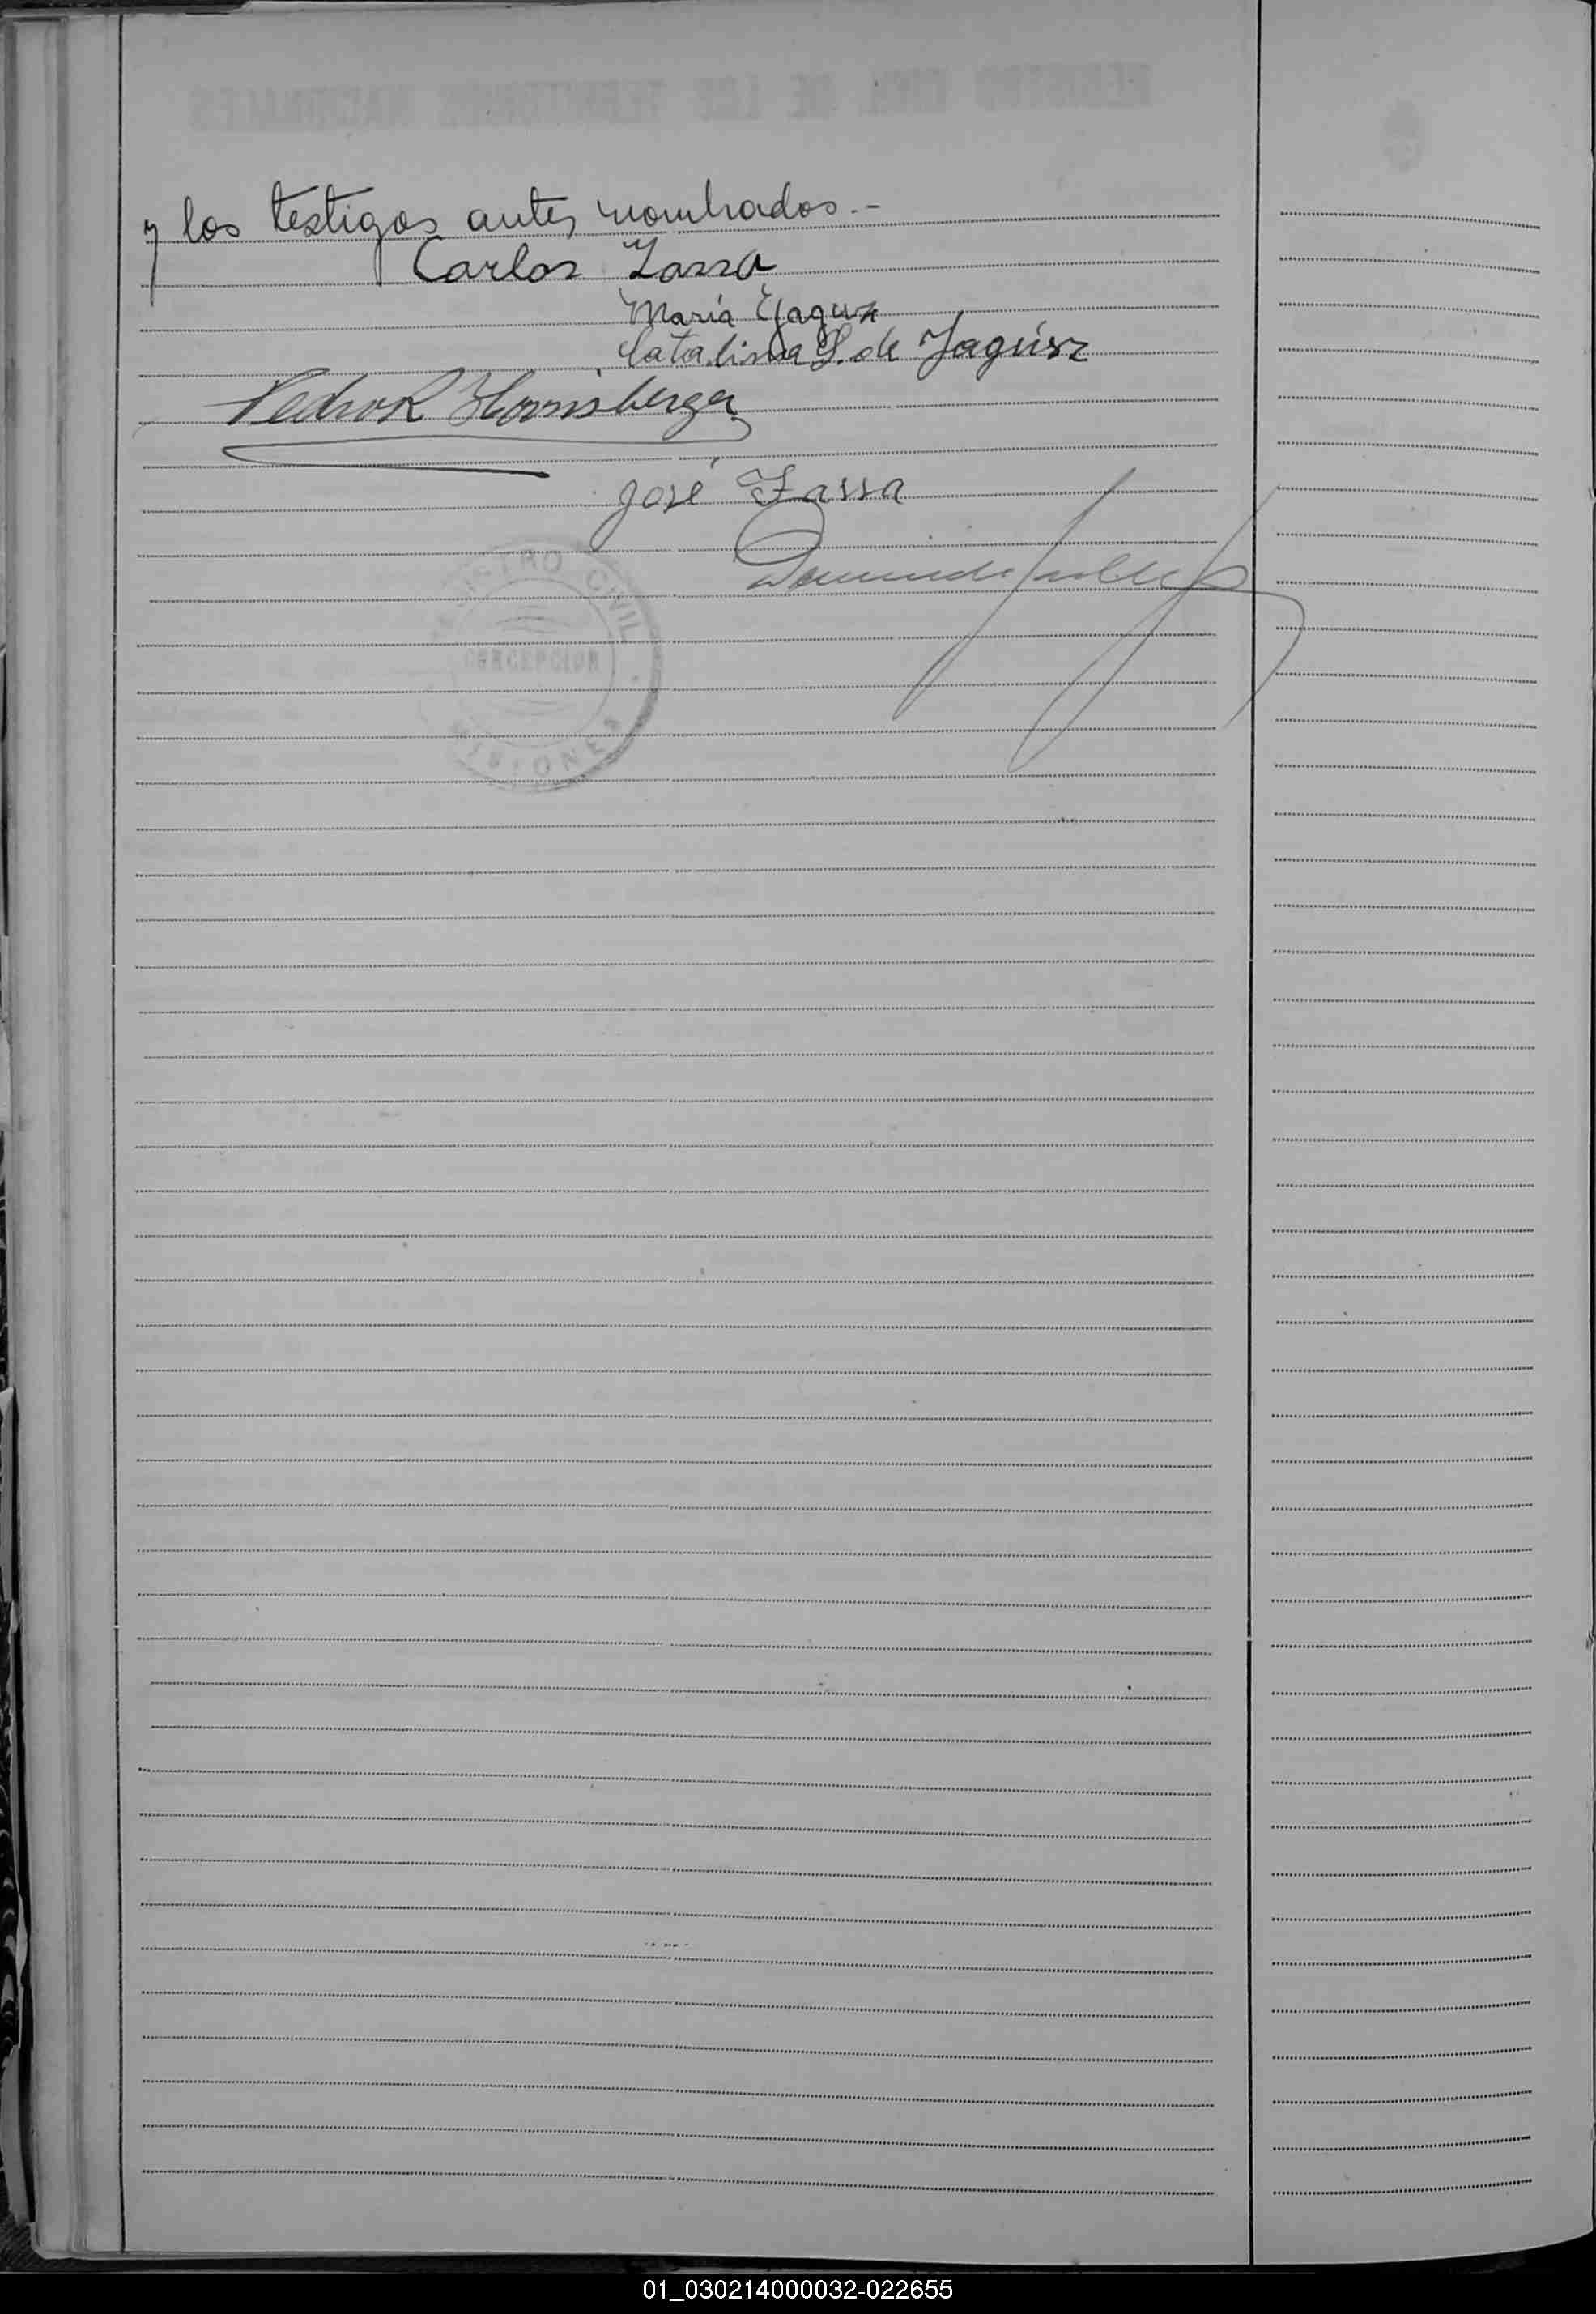 y los testigos antes nombrados.-
Carlos Zassa
María Yagusz
Catalina S. de Jagúsz
Pedro R Hornisberger
José Zassa
REGISTRO CIVIL
CONCEPCION
MISIONES
01_030214000032-022655